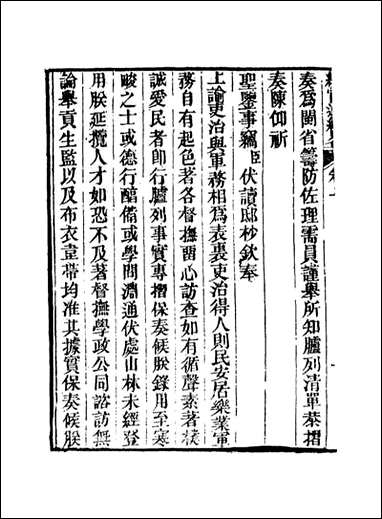 奏爲閩省籌防佐理需員謹舉所知臚列清單恭摺
奏陳仰祈
聖鑒事竊臣伏讀邸杪欽奉
上諭吏治與軍務相爲表裏吏治得人則民安居樂業軍
務自有起色著各督撫留心訪查如有循聲素著㤗
誠愛民者卽行臚列事實專摺保奏候朕錄用至寒
畯之士或德行醕備或學問淵通伏處山林未經登
用朕延攬人才如恐不及著督撫學政公同諮訪無
論舉貢生監以及布衣韋帶均准其據實保奏候朕